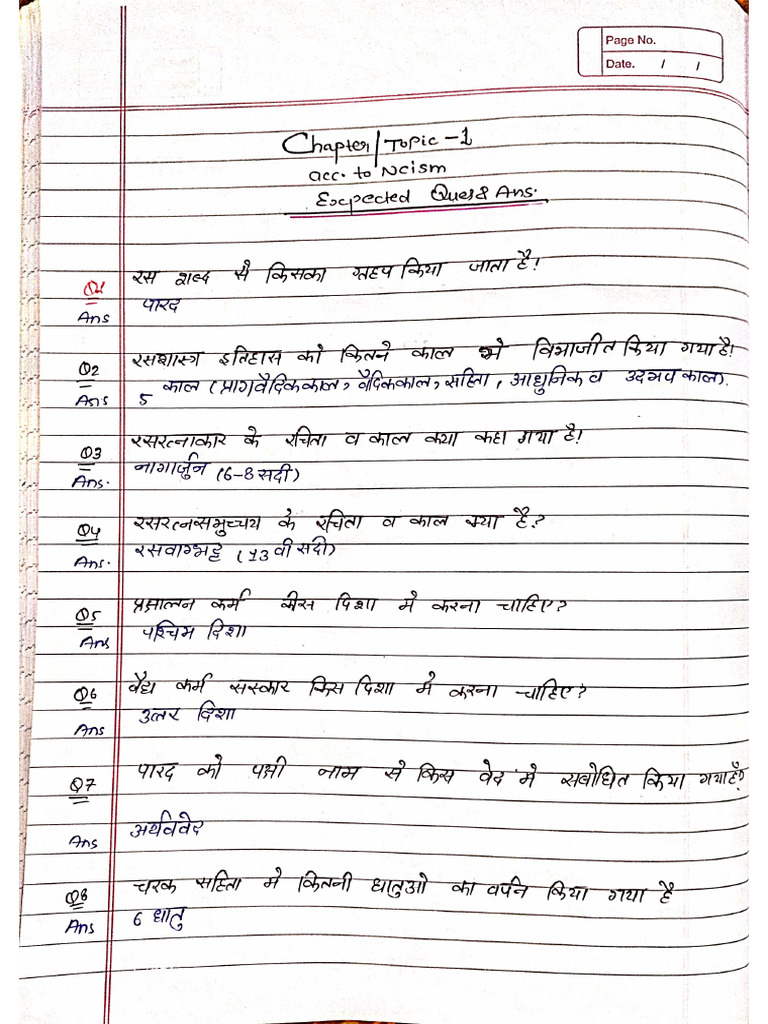 Page No.
Date. / /
Chapter/Topic-1
acc. to Ncism
Expected Ques & Ans.
Q1 रस शब्द से किसका ग्रहण किया जाता है!
Ans पारद
Q2 रसशास्त्र इतिहास को कितने काल मे विभाजीत किया गया है!
Ans 5 काल (प्रागवैदिक काल, वैदिककाल, सहिता, आधुनिक व उदभव काल).
Q3 रसरत्नाकार के रचिता व काल क्या कहा गया है!
Ans. नागार्जुन (6-8 सदी)
Q4 रसरत्नसमुच्चय के रचिता व काल क्या है?
Ans. रसवाग्भट्ट (13 वी सदी)
Q5 प्रक्षालन कर्म कीस दिशा मे करना चाहिए?
Ans पश्चिम दिशा
Q6 वैद्य कर्म सस्कार किस दिशा मे करना चाहिए?
Ans उत्तर दिशा
Q7 पारद को पक्षी नाम से किस वेद मे सबोधित किया गया है?
Ans अर्थववेद
Q8 चरक सहिता मे कितनी धातुओ का वर्णन किया गया है
Ans 6 धातु